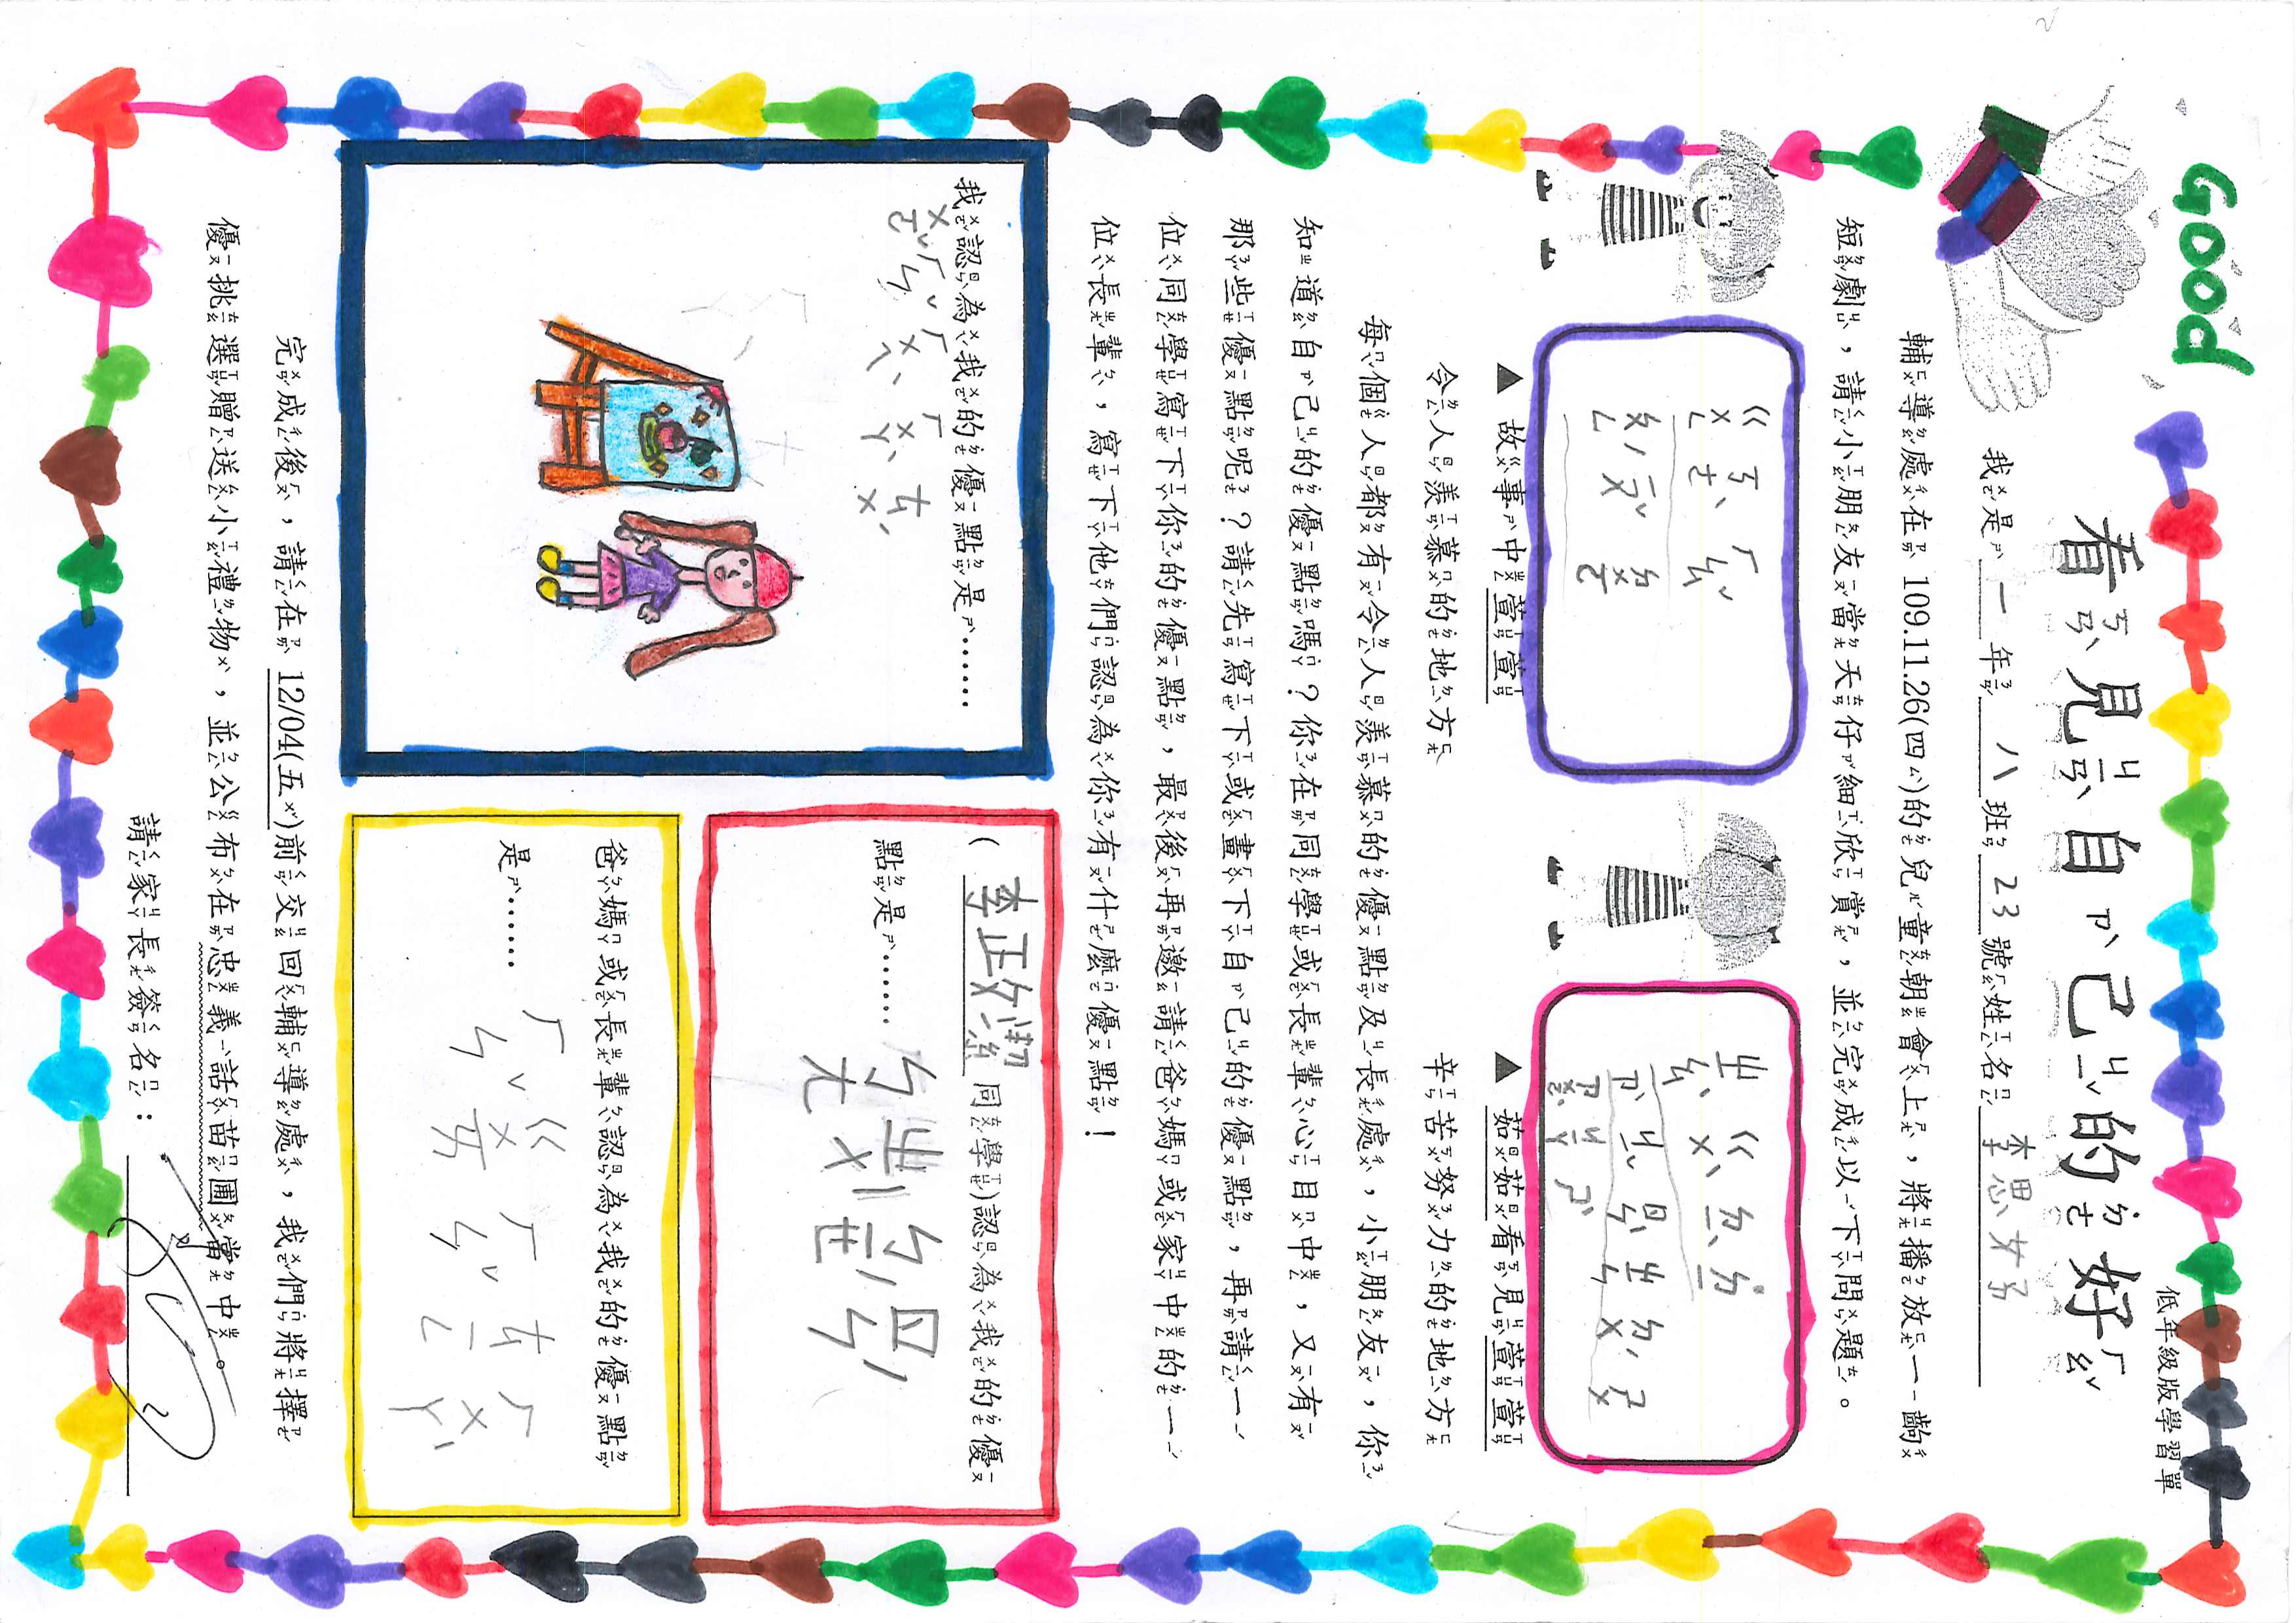 Good
低年級版學習單
看ㄎㄢˋ見ㄐㄧㄢˋ自ㄗˋ己ㄐㄧˇ的ㄉㄜ˙好ㄏㄠˇ
我是 一 年 八 班 23 號姓名 李思妤
輔導處在 109.11.26(四)的兒童朝會上,將播放一齣
短劇,請小朋友當天仔細欣賞,並完成以下問題。
ㄍㄨㄥ ㄎㄜˋ ㄏㄠˇ
ㄆㄥˊ ㄧㄡˇ ㄉㄨㄛ
▲ 故事中萱萱
令人羨慕的地方
ㄓㄠˋ ㄍㄨˋ ㄉㄧˋ ㄉㄧ˙
ㄗˋ ㄐㄧˇ ㄖㄣˋ ㄓㄣ ㄉㄨˊ ㄕㄨ
▲ 茹茹看見萱萱
辛苦努力的地方
每個人都有令人羨慕的優點及長處,小朋友,你
知道自己的優點嗎?你在同學或長輩心目中,又有
那些優點呢?請先寫下或畫下自己的優點,再請一
位同學寫下你的優點,最後再邀請爸媽或家中的一
位長輩,寫下他們認為你有什麼優點!
我認為我的優點是……
ㄨㄛˇ ㄏㄣˇ ㄏㄨㄟˋ ㄏㄨㄚˋ ㄊㄨˊ
(李正潔 同學)認為我的優
點是……
ㄅㄤ ㄓㄨˋ ㄅㄧㄝˊ ㄖㄣˊ
爸媽或長輩認為我的優點
是……
ㄏㄣˇ ㄍㄨㄞ ㄏㄣˇ ㄊㄧㄥ ㄏㄨㄚˋ
完成後,請在 12/04(五)前交回輔導處,我們將擇
優挑選贈送小禮物,並公布在忠義話苗圃當中。
請家長簽名: